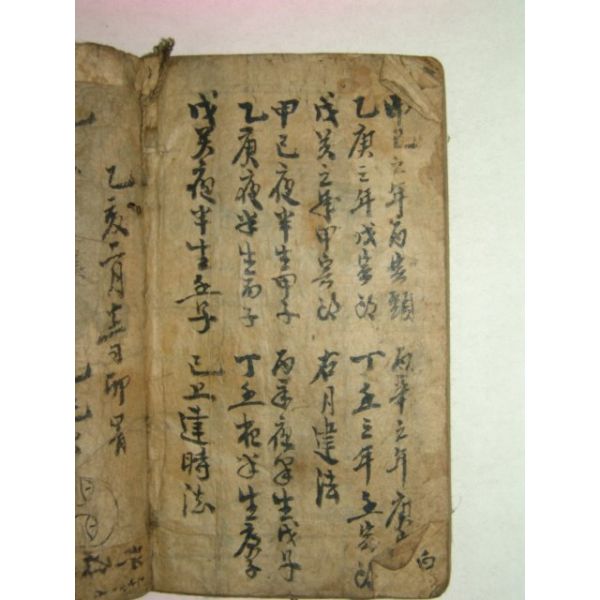 甲己之年丙寅頭 丙辛之年庚
乙庚之年戊寅頭 丁壬之年壬寅頭
戊癸之年甲寅頭 右月建法
甲己夜半生甲子 丙辛夜半生戊子
乙庚夜半生丙子 丁壬夜半生庚子
戊癸夜半生壬子 已上建時法
乙亥二月 日卯